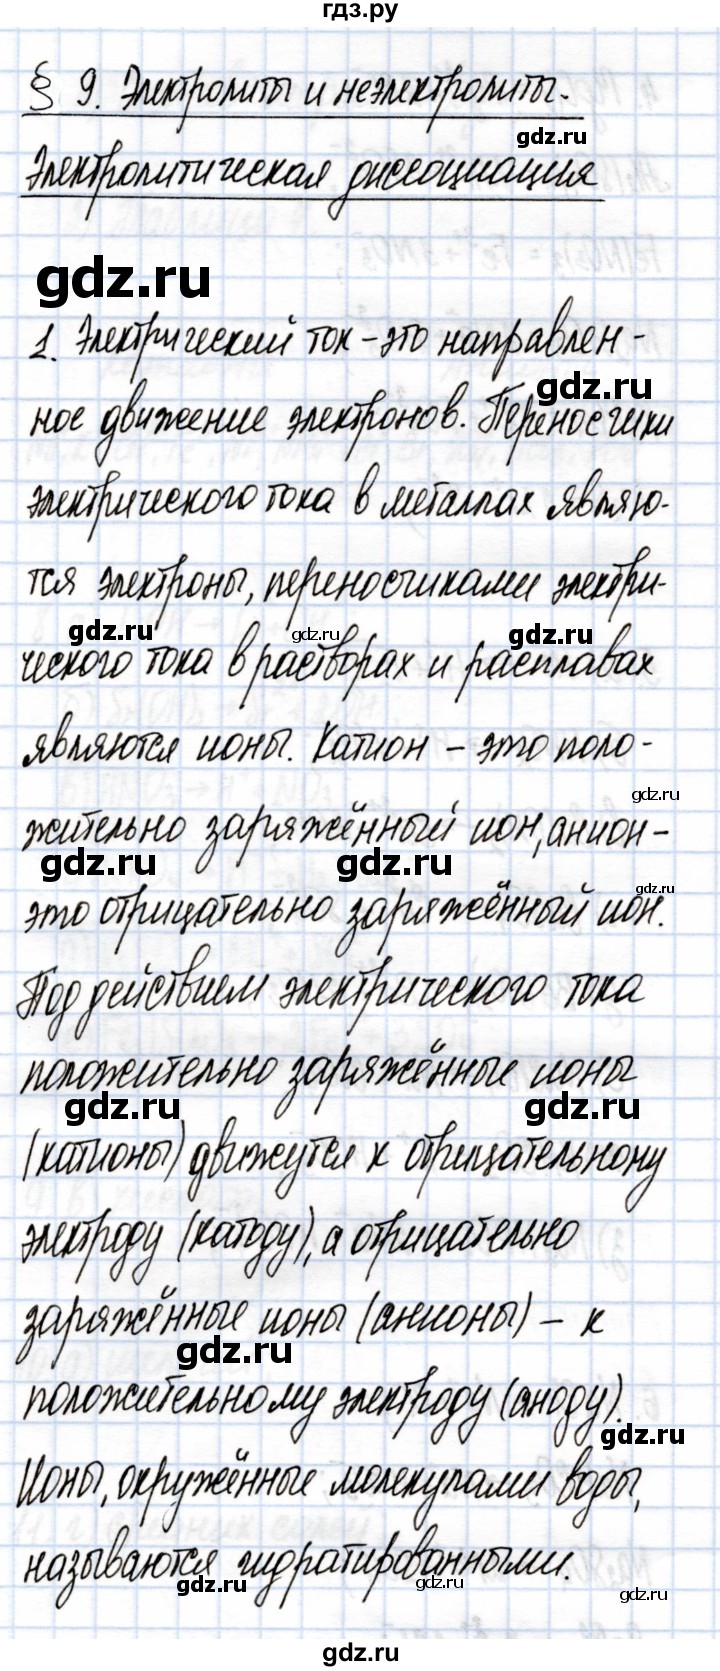 гдз.ру
§ 9. Электролиты и неэлектролиты.
gdz.ru
Электролитическая диссоциация
gdz.ru
1. Электрический ток – это направлен-
gdz.ru
ное движение электронов. Переносчики
электрического тока в металлах являю-
тся электроны, переносчиками электри-
gdz.ru gdz.ru gdz.ru
ческого тока в растворах и расплавах
являются ионы. Катион – это поло-
gdz.ru
жительно заряжённый ион, анион –
gdz.ru gdz.ru gdz.ru
это отрицательно заряжённый ион.
Под действием электрического тока
положительно заряжённые ионы
gdz.ru gdz.ru
(катионы) движутся к отрицательному
электроду (катоду), а отрицательно
заряжённые ионы (анионы) – к
gdz.ru
положительному электроду (аноду).
gdz.ru
Ионы, окружённые молекулами воды,
называются гидратированными.
gdz.ru gdz.ru gdz.ru
gdz.ru